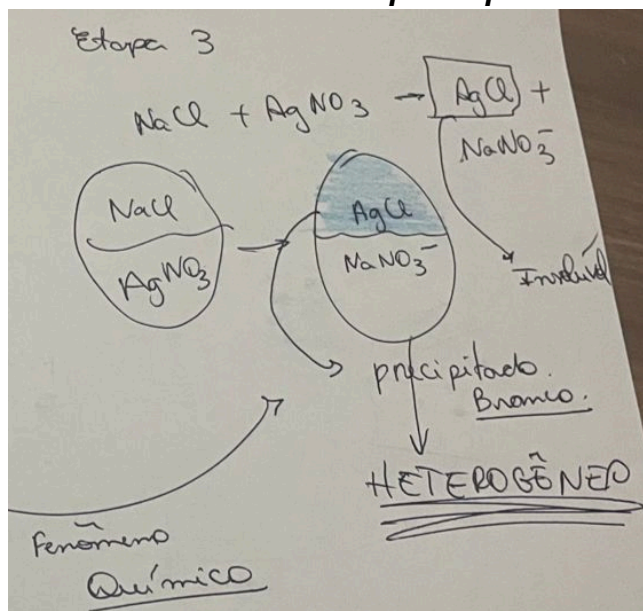 Etapa 3
NaCl + AgNO₃ → AgCl +
NaNO₃⁻
NaCl
AgNO₃
AgCl
NaNO₃⁻
Insolúvel
precipitado.
Branco.
HETEROGÊNEO
Fenômeno
Químico